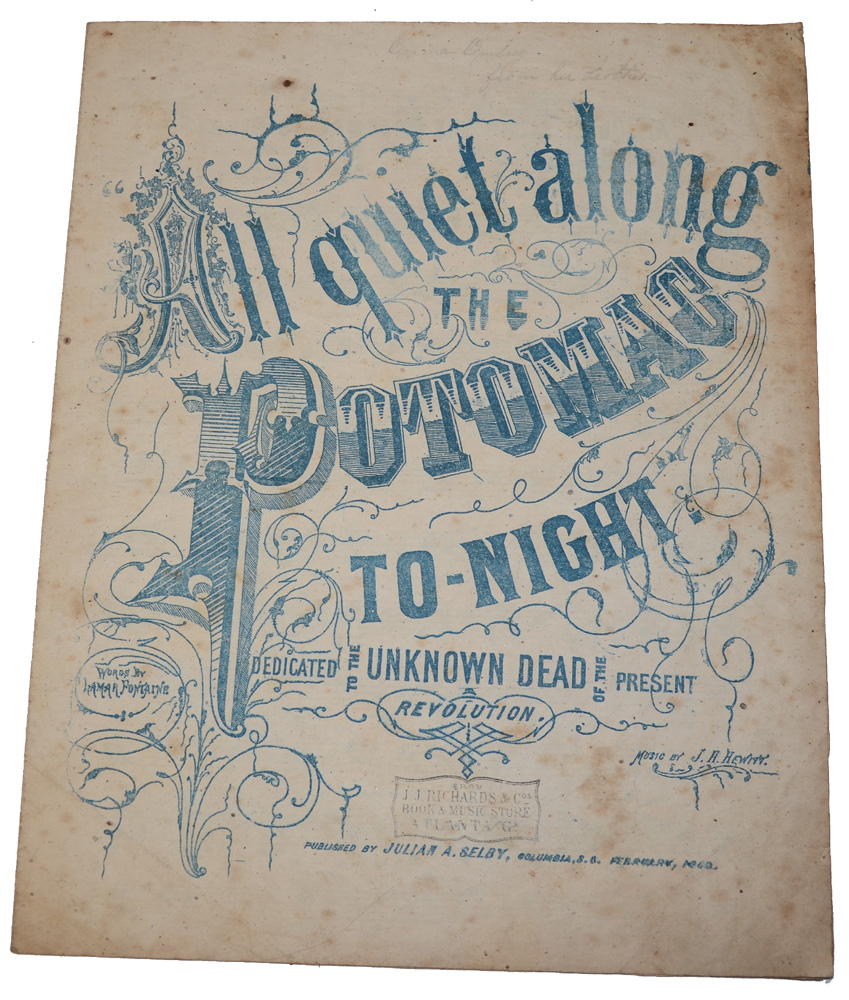 from her
"All quiet along
THE
POTOMAC
TO-NIGHT.
DEDICATED TO THE UNKNOWN DEAD OF THE PRESENT
REVOLUTION.
WORDS BY
LAMAR FONTAINE
MUSIC BY J. H. HEWITT.
FROM
J. J. RICHARDS & Cos
BOOK & MUSIC STORE
ATLANTA Ga
PUBLISHED BY JULIAN A. SELBY, COLUMBIA, S. C. FEBRUARY,